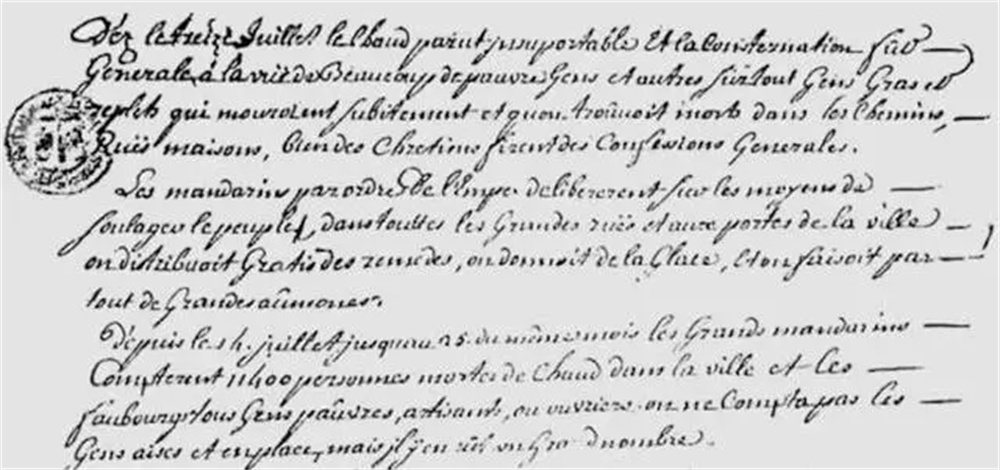 Déz le treize Juillet le Chaud parut jnsuportable Et la Consternation fut
Generale, à la vuë de Beaucoup de pauvre Gens et autres sur tout Gens Gras et
replets qui mouroient subitement et quon trouvoit morts dans les Chemins,
Ruës maisons, bien des Chretiens firent des Confessions Generales.
Les mandarins par ordre de l'Emper delibererent sur les moyens de
soulager le peuple, dans touttes les Grandes ruës et aux portes de la ville
on distribuoit Gratis des remedes, on donnoit de la Glace, Et on faisoit par
tout de Grandes aûmones.
Dépuis le 14. juillet jusquau 25. du même mois les Grands mandarins
Compterent 11400 personnes mortes de Chaud dans la ville et les
faubourgs tous Gens paûvres, artisants, ou ouvriers. on ne Compta pas les
Gens aises et en place, mais jl y en eut un Grand nombre.